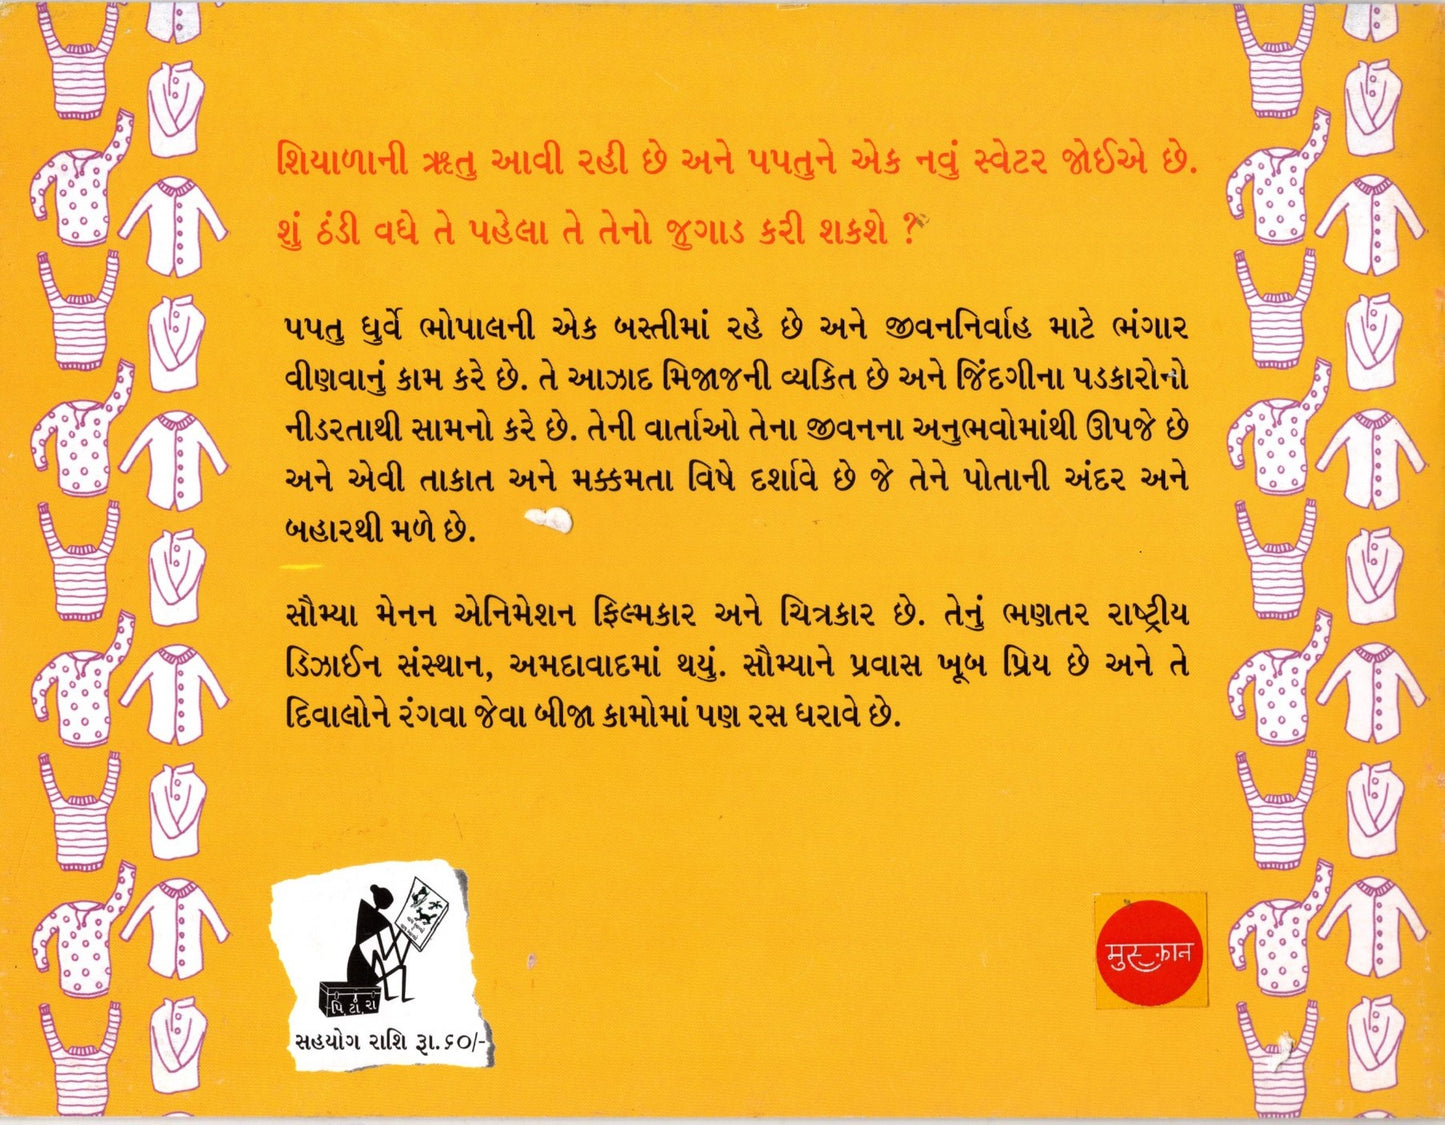 શિયાળાની ઋતુ આવી રહી છે અને પપતુને એક નવું સ્વેટર જોઈએ છે.
શું ઠંડી વધે તે પહેલા તે તેનો જુગાડ કરી શકશે ?
પપતુ ધુર્વે ભોપાલની એક બસ્તીમાં રહે છે અને જીવનનિર્વાહ માટે ભંગાર
વીણવાનું કામ કરે છે. તે આઝાદ મિજાજની વ્યકિત છે અને જિંદગીના પડકારોનો
નીડરતાથી સામનો કરે છે. તેની વાર્તાઓ તેના જીવનના અનુભવોમાંથી ઊપજે છે
અને એવી તાકાત અને મક્કમતા વિષે દર્શાવે છે જે તેને પોતાની અંદર અને
બહારથી મળે છે.
સૌમ્યા મેનન એનિમેશન ફિલ્મકાર અને ચિત્રકાર છે. તેનું ભણતર રાષ્ટ્રીય
ડિઝાઈન સંસ્થાન, અમદાવાદમાં થયું. સૌમ્યાને પ્રવાસ ખૂબ પ્રિય છે અને તે
દિવાલોને રંગવા જેવા બીજા કામોમાં પણ રસ ધરાવે છે.
પિટારા
સહયોગ રાશિ રૂા.૬૦/-
मुस्कान